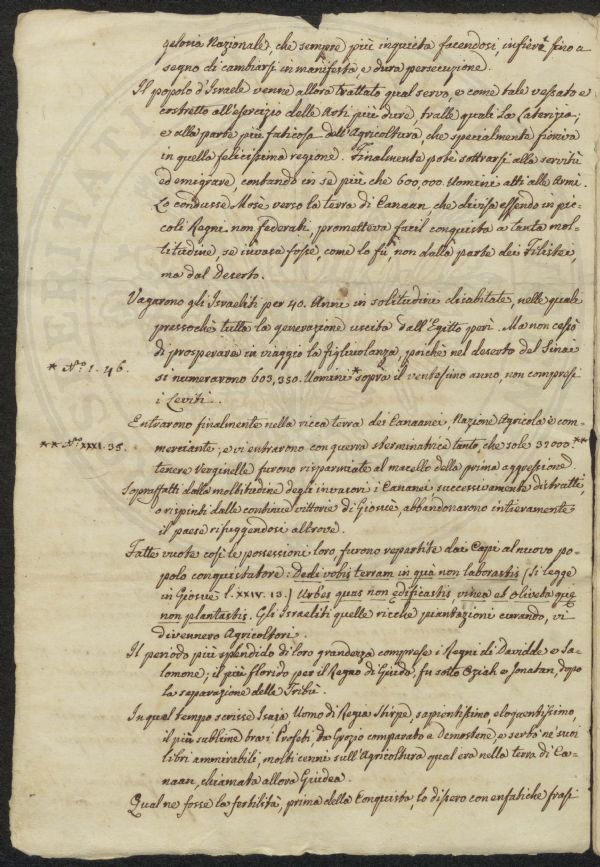 gelosia Nazionale, che sempre più inquieta facendosi, infierì fino a
segno di cambiarsi in manifesta e dura persecuzione.
Il popolo d'Israele venne allora trattato qual servo, e come tale vessato e
costretto all'esercizio delle Arti più dure, tralle quali la Laterizia;
e alla parte più faticosa dell'Agricoltura, che specialmente fioriva
in quella felicissima regione. Finalmente potè sottrarsi alla servitù
ed emigrare, contando in se più che 600,000. Uomini atti alle Armi.
Lo condusse Mosè verso la terra di Canaan, che divisa essendo in pic-
coli Regni non federati, prometteva facil conquista a tanta mol-
titudine, se invasa fosse, come lo fù, non dalla parte dei Filistei,
ma dal Deserto.
Vagarono gli Israeliti per 40. Anni in solitudini disabitate, nelle quali
pressochè tutta la generazione uscita dall'Egitto perì. Ma non cessò
di prosperare in viaggio la figliuolanza, poichè nel deserto del Sinai
* N.º 1. 46.
si numerarono 603,350. Uomini * sopra il ventesimo anno, non compresi
i Leviti.
Entrarono finalmente nella ricca terra dei Cananei, Nazione Agricola e com-
** N.º XXXI. 35.
merciante; e vi entrarono con guerra sterminatrice tanto, che sole 32000. **
tenere Verginelle furono risparmiate al macello della prima aggressione
Sopraffatti dalla moltitudine degli invasori i Cananei, successivamente distrutti,
o rispinti dalle continue vittorie di Giosuè, abbandonarono intieramente
il paese rifuggendosi altrove.
Fatte vuote così le possessioni loro, furono repartite dai Capi al nuovo po-
polo conquistatore: Dedi vobis terram in qua non laborastis (Si legge
in Giosuè l. XXIV. 13.) Urbes quas non edificastis vinea et oliveta que
non plantastis. Gli Israeliti quelle ricche piantazioni curando, vi
divennero Agricoltori.
Il periodo più splendido di loro grandezza comprese i Regni di Davidde e Sa-
lomone; il più florido per il Regno di Giuda, fu sotto Oziah e Jonatan, dopo
la separazione delle Tribù.
In quel tempo scrisse Isaia, Uomo di Regia Stirpe, sapientissimo, eloquentissimo,
il più sublime tra i Profeti, da Grozio comparato a Demostene, e serbò ne' suoi
libri ammirabili, molti cenni sull'Agricoltura qual era nella terra di Ca-
naan, chiamata allora Giudea.
Qual ne fosse la fertilità, prima della Conquista, lo dissero con enfatiche frasi